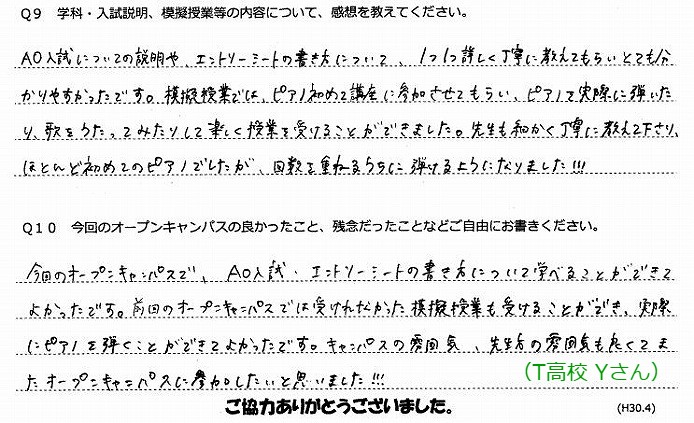 Q9 学科・入試説明、模擬授業等の内容について、感想を教えてください。
AO入試についての説明や、エントリーシートの書き方について、1つ1つ詳しく丁寧に教えてもらいとても分
かりやすかったです。模擬授業では、ピアノ初めて講座に参加させてもらい、ピアノで実際に弾いた
り、歌をうたってみたりして楽しく授業を受けることができました。先生も細かく丁寧に教えて下さり、
ほとんど初めてのピアノでしたが、回数を重ねるうちに弾けるようになりました!!!
Q10 今回のオープンキャンパスの良かったこと、残念だったことなどご自由にお書きください。
今回のオープンキャンパスで、AO入試・エントリーシートの書き方について学べることができて
よかったです。前回のオープンキャンパスでは受けれなかった模擬授業も受けることができ、実際
にピアノを弾くことができてよかったです。キャンパスの雰囲気、先生方の雰囲気も良くてま
たオープンキャンパスに参加したいと思いました!!!
（T高校 Yさん）
ご協力ありがとうございました。
(H30.4)